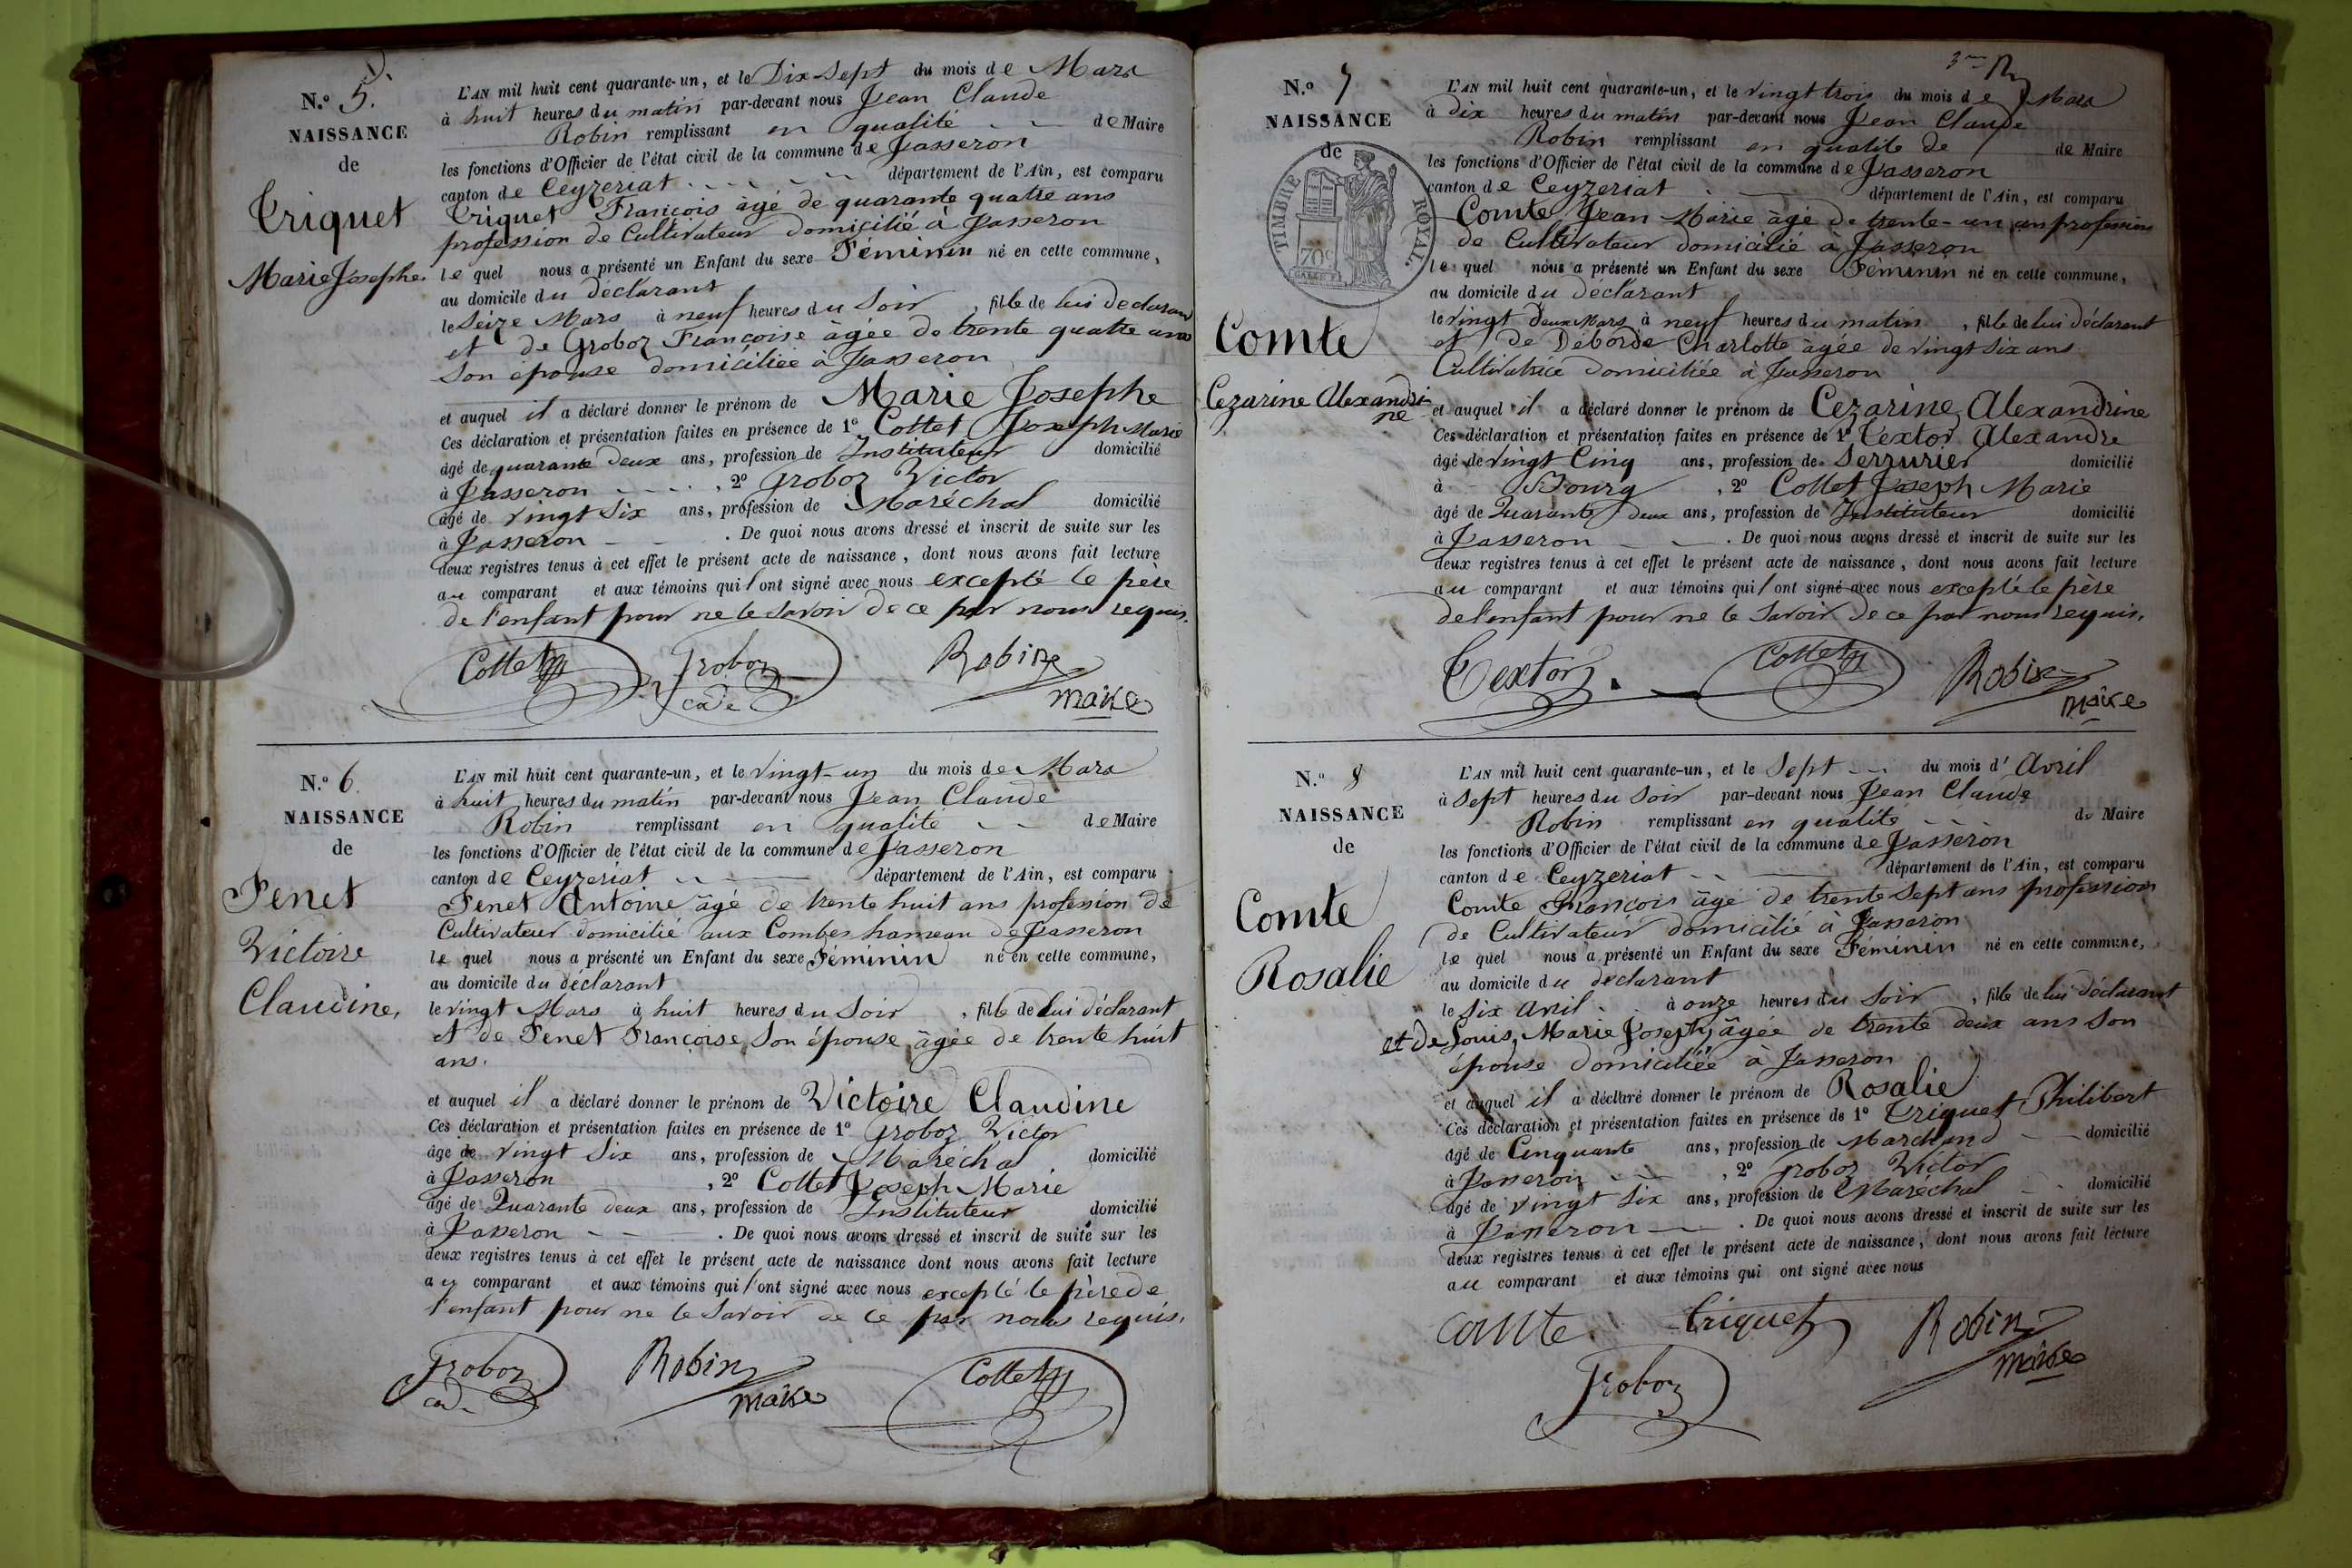 N.° 5.
NAISSANCE
de
Triquet
Marie Josephe.
L'AN mil huit cent quarante-un, et le Dix-Sept du mois de Mars
à huit heures du matin par-devant nous Jean Claude
Robin remplissant en qualité de Maire
les fonctions d'Officier de l'état civil de la commune de Jasseron
canton de Ceyzeriat département de l'Ain, est comparu
Triquet François âgé de quarante quatre ans
profession de Cultivateur domicilié à Jasseron
le quel nous a présenté un Enfant du sexe Féminin né en cette commune,
au domicile du déclarant
le Seize Mars à neuf heures du Soir, fille de lui declarant
et de Groboz Françoise âgée de trente quatre ans
Son épouse domiciliée à Jasseron
et auquel il a déclaré donner le prénom de Marie Josephe
Ces déclaration et présentation faites en présence de 1° Cottet Joseph Marie
âgé de quarante deux ans, profession de Instituteur domicilié
à Jasseron, 2° Groboz Victor
âgé de vingt Six ans, profession de Maréchal domicilié
à Jasseron. De quoi nous avons dressé et inscrit de suite sur les
deux registres tenus à cet effet le présent acte de naissance, dont nous avons fait lecture
au comparant et aux témoins qui l'ont signé avec nous excepté le père
de l'enfant pour ne le savoir de ce par nous requis.
Cottet Groboz Robin
cad. maire
N.° 6.
NAISSANCE
de
Fenet
Victoire
Claudine,
L'AN mil huit cent quarante-un, et le vingt-un du mois de Mars
à huit heures du matin par-devant nous Jean Claude
Robin remplissant en qualité de Maire
les fonctions d'Officier de l'état civil de la commune de Jasseron
canton de Ceyzeriat département de l'Ain, est comparu
Fenet Antoine âgé de trente huit ans profession de
Cultivateur domicilié aux Combes hameau de Jasseron
le quel nous a présenté un Enfant du sexe Féminin né en cette commune,
au domicile du déclarant
le vingt Mars à huit heures du Soir, fille de lui déclarant
et de Fenet Françoise, Son épouse âgée de trente huit
ans.
et auquel il a déclaré donner le prénom de Victoire Claudine
Ces déclaration et présentation faites en présence de 1° Groboz Victor
âgé de vingt Six ans, profession de Maréchal domicilié
à Jasseron, 2° Cottet Joseph Marie
âgé de Quarante deux ans, profession de Instituteur domicilié
à Jasseron. De quoi nous avons dressé et inscrit de suite sur les
deux registres tenus à cet effet le présent acte de naissance dont nous avons fait lecture
au comparant et aux témoins qui l'ont signé avec nous excepté le père de
l'enfant pour ne le savoir de ce par nous requis.
Groboz Robin Cottet
cad. maire
3me
N.° 7
NAISSANCE
de
TIMBRE ROYAL.
70c
Comte
Cezarine Alexandri-
ne
L'AN mil huit cent quarante-un, et le vingt trois du mois de Mars
à dix heures du matin par-devant nous Jean Claude
Robin remplissant en qualité de de Maire
les fonctions d'Officier de l'état civil de la commune de Jasseron
canton de Ceyzeriat département de l'Ain, est comparu
Comte Jean Marie âgé de trente-un an profession
de Cultivateur domicilié à Jasseron
le quel nous a présenté un Enfant du sexe Féminin né en cette commune,
au domicile du déclarant
le vingt deux Mars à neuf heures du matin, fille de lui déclarant
et de Deborde Charlotte âgée de vingt six ans
Cultivatrice domiciliée à Jasseron
et auquel il a déclaré donner le prénom de Cezarine Alexandrine
Ces déclaration et présentation faites en présence de 1° Textor Alexandre
âgé de vingt Cinq ans, profession de Serrurier domicilié
à Bourg, 2° Cottet Joseph Marie
âgé de Quarante deux ans, profession de Instituteur domicilié
à Jasseron. De quoi nous avons dressé et inscrit de suite sur les
deux registres tenus à cet effet le présent acte de naissance, dont nous avons fait lecture
au comparant et aux témoins qui l'ont signé avec nous excepté le père
de l'enfant pour ne le savoir de ce par nous requis.
Textor Cottet Robin
maire
N.° 8
NAISSANCE
de
Comte
Rosalie
L'AN mil huit cent quarante-un, et le Sept du mois d'Avril
à sept heures du Soir par-devant nous Jean Claude
Robin remplissant en qualité de Maire
les fonctions d'Officier de l'état civil de la commune de Jasseron
canton de Ceyzeriat département de l'Ain, est comparu
Comte François âgé de trente Sept ans profession
de Cultivateur domicilié à Jasseron
le quel nous a présenté un Enfant du sexe Féminin né en cette commune,
au domicile du déclarant
le six avril à onze heures du Soir, fille de lui déclarant
et de Louis, Marie Joseph, âgée de trente deux ans Son
épouse domiciliée à Jasseron
et auquel il a déclaré donner le prénom de Rosalie
Ces déclaration et présentation faites en présence de 1° Triquet Philibert
âgé de Cinquante ans, profession de Marchand domicilié
à Jasseron, 2° Groboz Victor
âgé de vingt Six ans, profession de Maréchal domicilié
à Jasseron. De quoi nous avons dressé et inscrit de suite sur les
deux registres tenus à cet effet le présent acte de naissance, dont nous avons fait lecture
au comparant et aux témoins qui ont signé avec nous
comte Triquet Robin
maire
Groboz